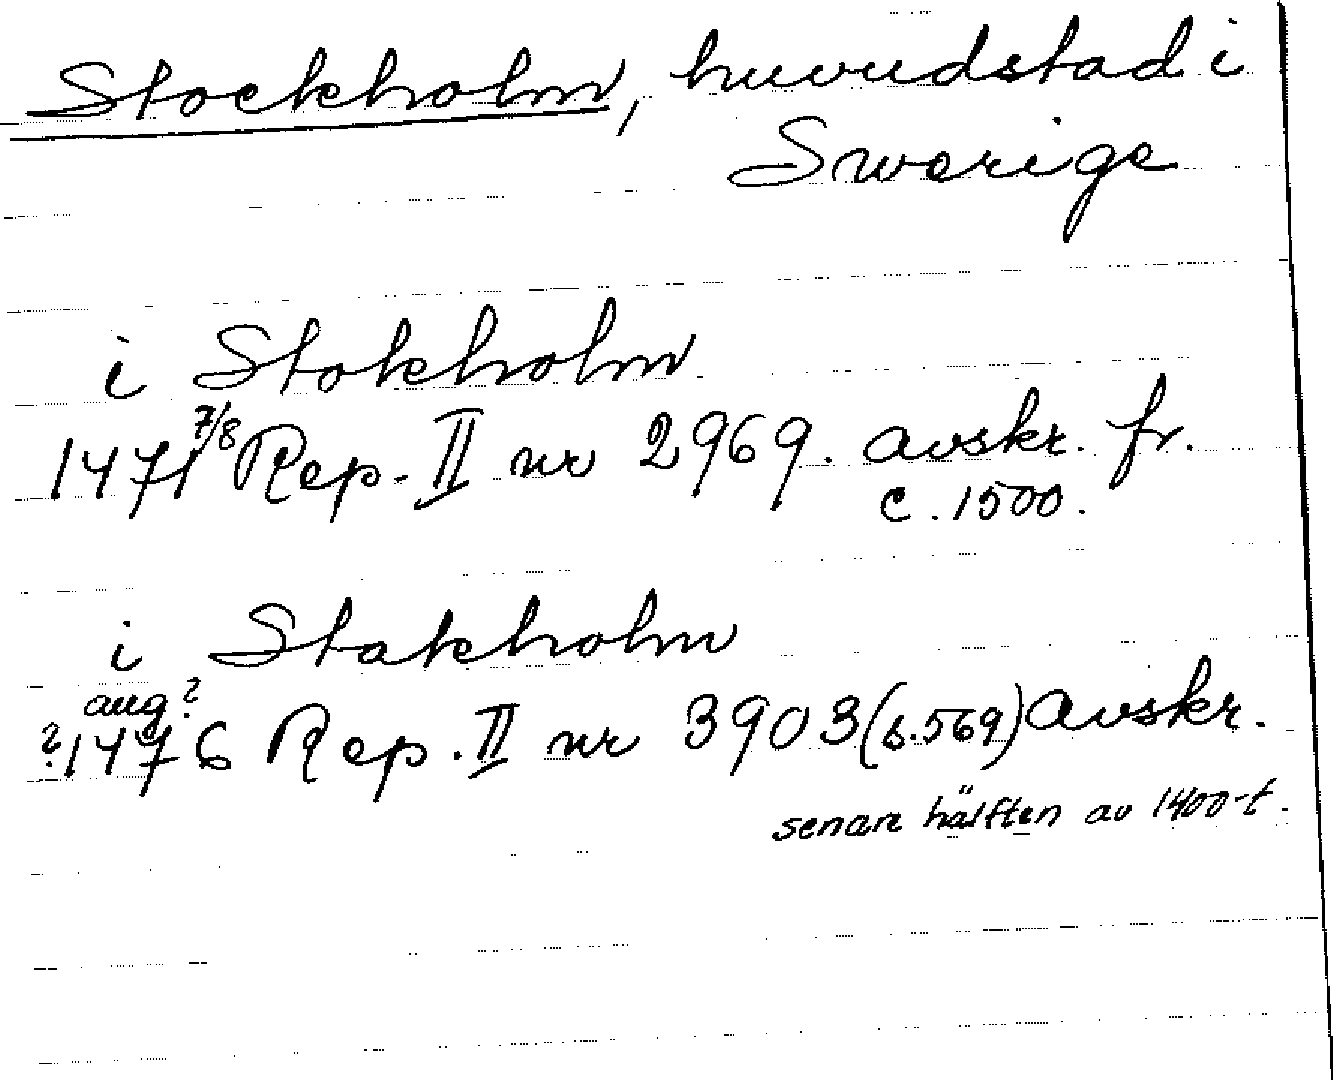 Stockholm, huvudstad i
Sverige
i Stokholm
1471 7/8 Rep. II nr 2969. avskr. fr.
c. 1500.
i Stakholm
aug?
?1476 Rep. II nr 3903 (s. 569) Avskr.
senare hälften av 1400-t.